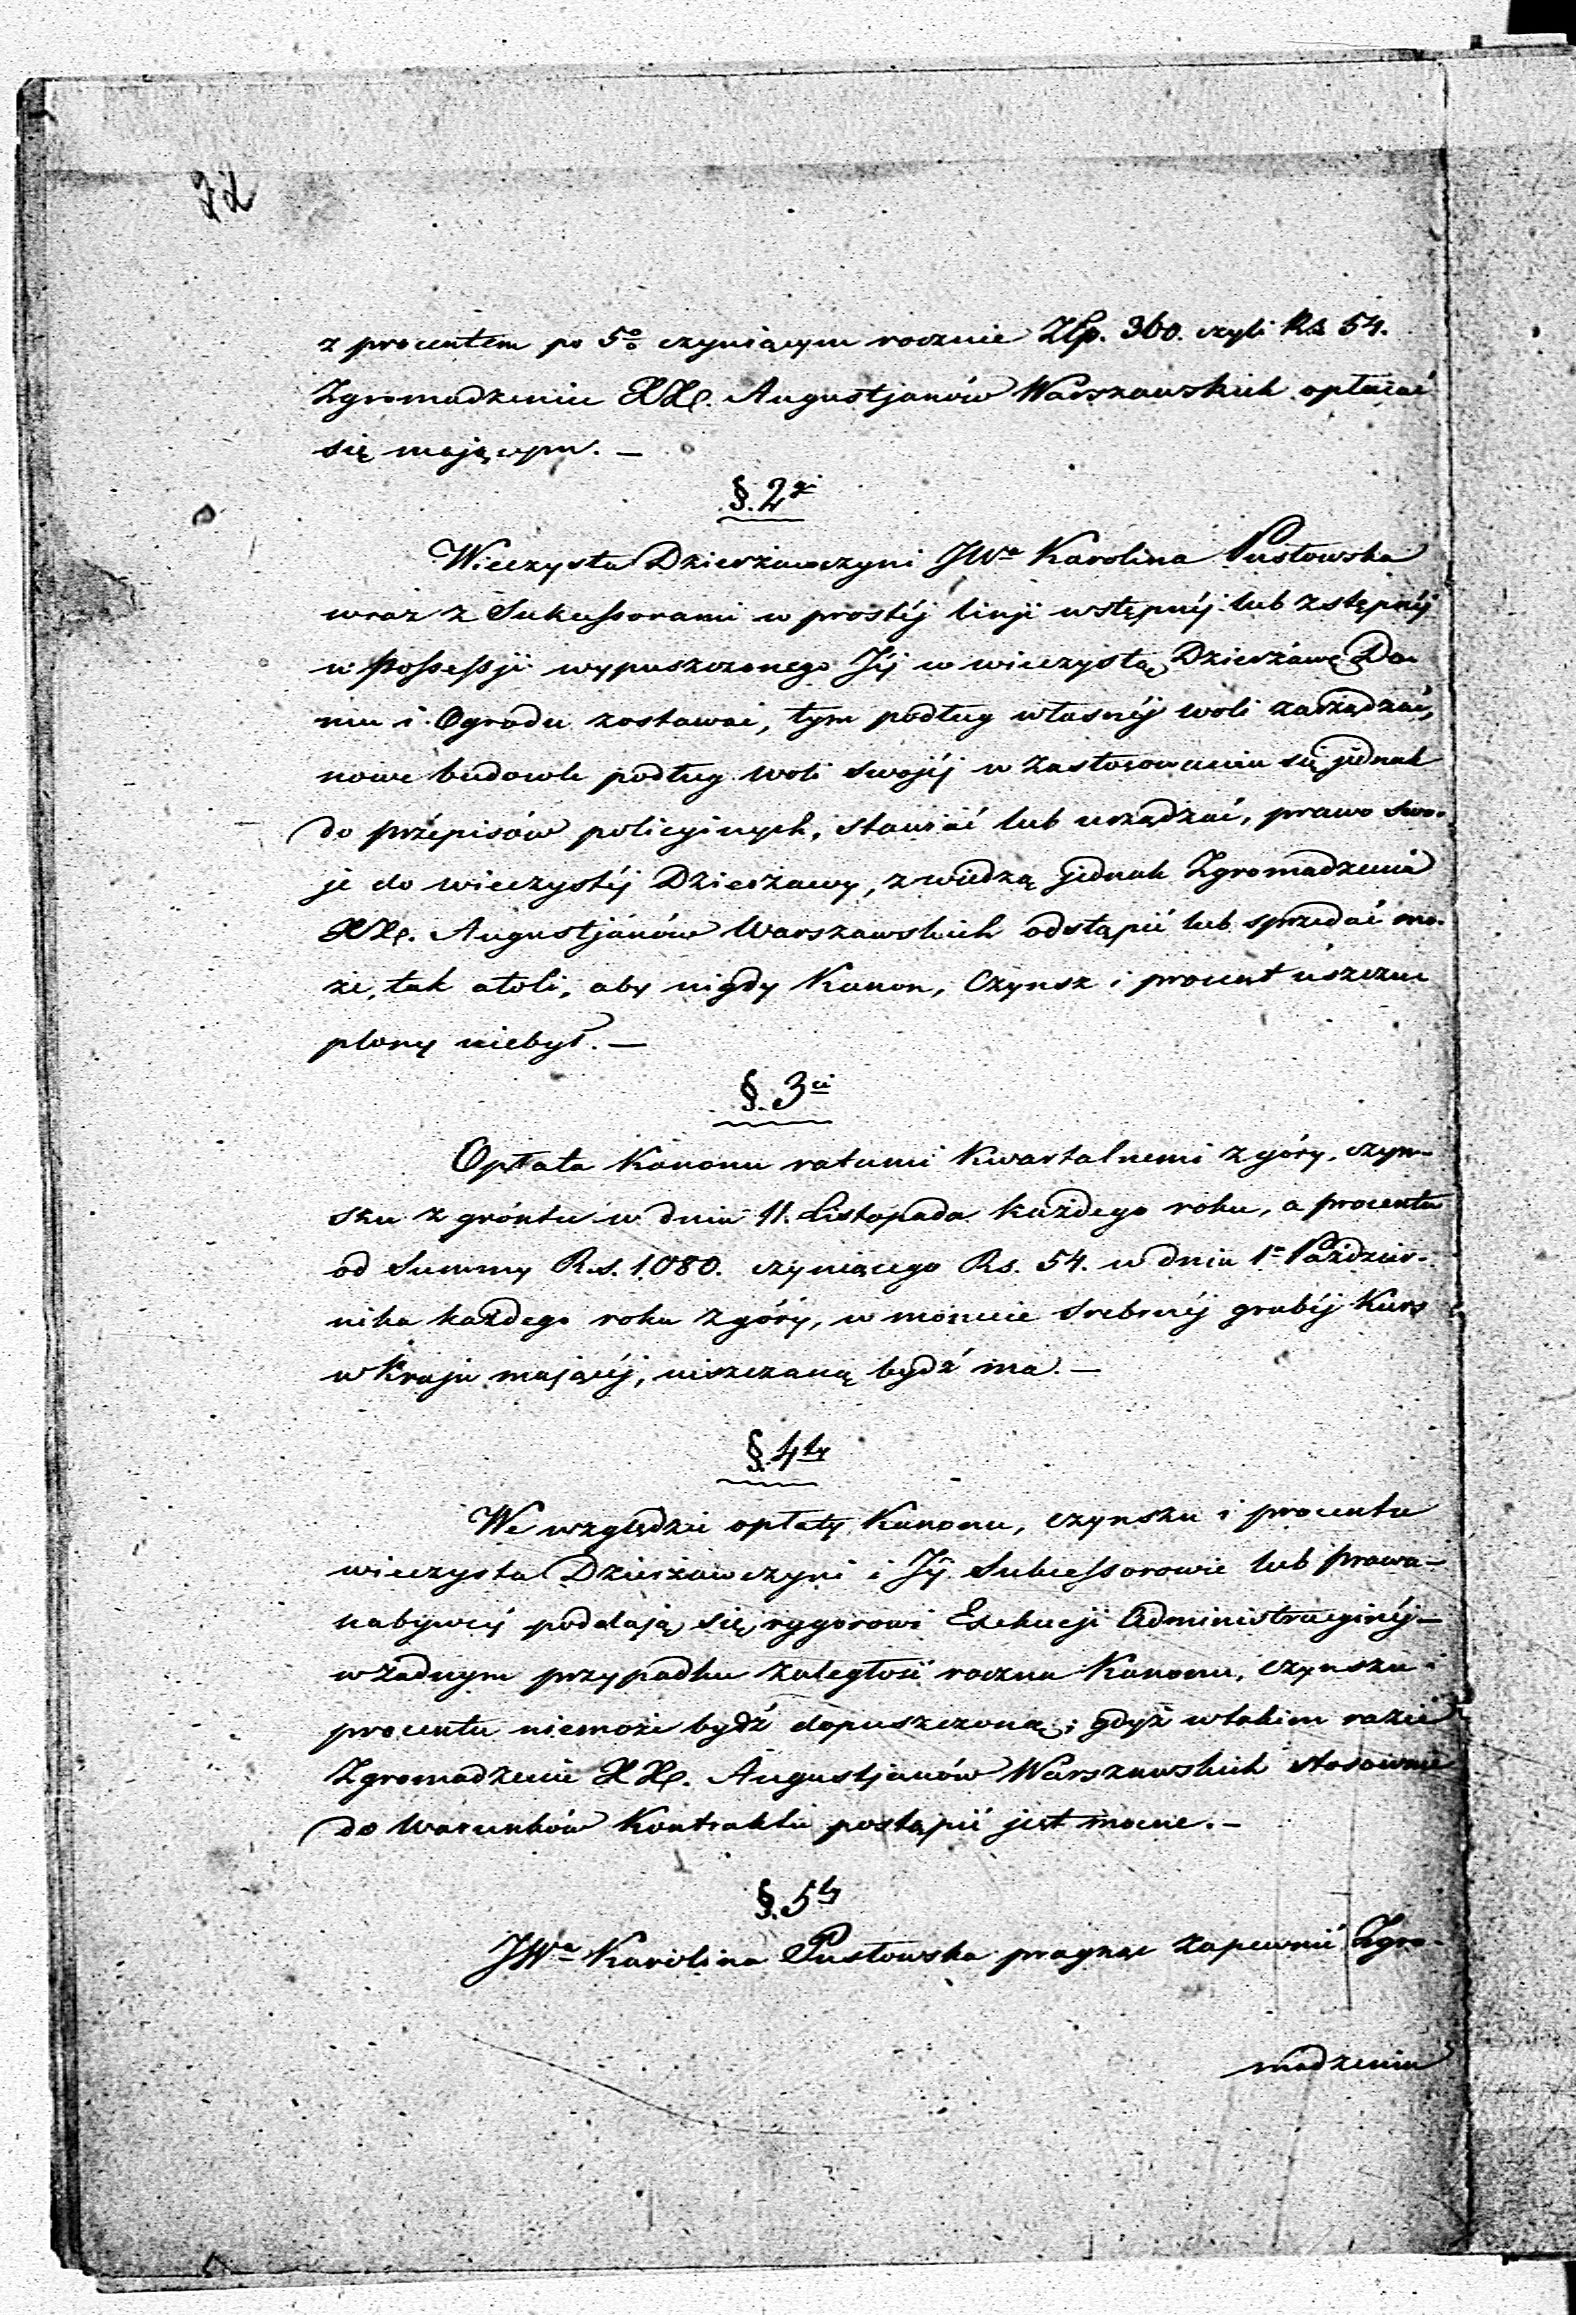 22
z procentem po 5% czyniącym rocznie Złp. 360. czyli Rs. 54.
Zgromadzeniu XX. Augustjanów Warszawskich opłacać
się mającym. —
§. 2gi
Wieczysta Dzierżawczyni JWa Karolina Pusłowska
wraz z Sukcessorami w prostéj linji wstępnéj lub zstępnéj
w Possessji wypuszczonego Jéj w wieczystą Dzierżawę Do-
mu i Ogrodu zostawać, tym podług własnéj woli zarządzać,
nowe budowle podług woli swojéj w zastosowaniu się jednak
do przepisów policyjnych, stawiać lub urządzać, prawo swo-
je do wieczystéj Dzierżawy, z wiedzą jednak Zgromadzenia
XX. Augustjanów Warszawskich odstąpić lub sprzedać mo-
że, tak atoli, aby nigdy Kanon, Czynsz i procent uszczu
plony niebył. —
§. 3ci
Opłata Kanonu ratami Kwartalnemi z góry, czyn-
szu z gróntu w dniu 11. Listopada każdego roku, a procentu
od Summy Rs. 1080. czyniącego Rs. 54. w dniu 1o Paździer-
nika każdego roku z góry, w monecie srebrnéj grubéj Kurs
w Kraju mającéj, uiszczaną bydź ma. —
§. 4ty
We względzie opłaty Kanonu, czynszu i procentu
wieczysta Dzierżawczyni i Jéj Sukcessorowie lub prawa-
nabywcy poddają się rygorowi Exekucji Administracyjnéj —
w żadnym przypadku zaległość roczna Kanonu, czynszu i
procentu niemoże bydź dopuszczoną; gdyż w takim razie
Zgromadzenie XX. Augustjanów Warszawskich stosownie
do Warunków Kontraktu postąpić jest mocne. —
§. 5ty
JWa Karolina Pusłowska pragnąc zapewnić Zgro-
madzeniu